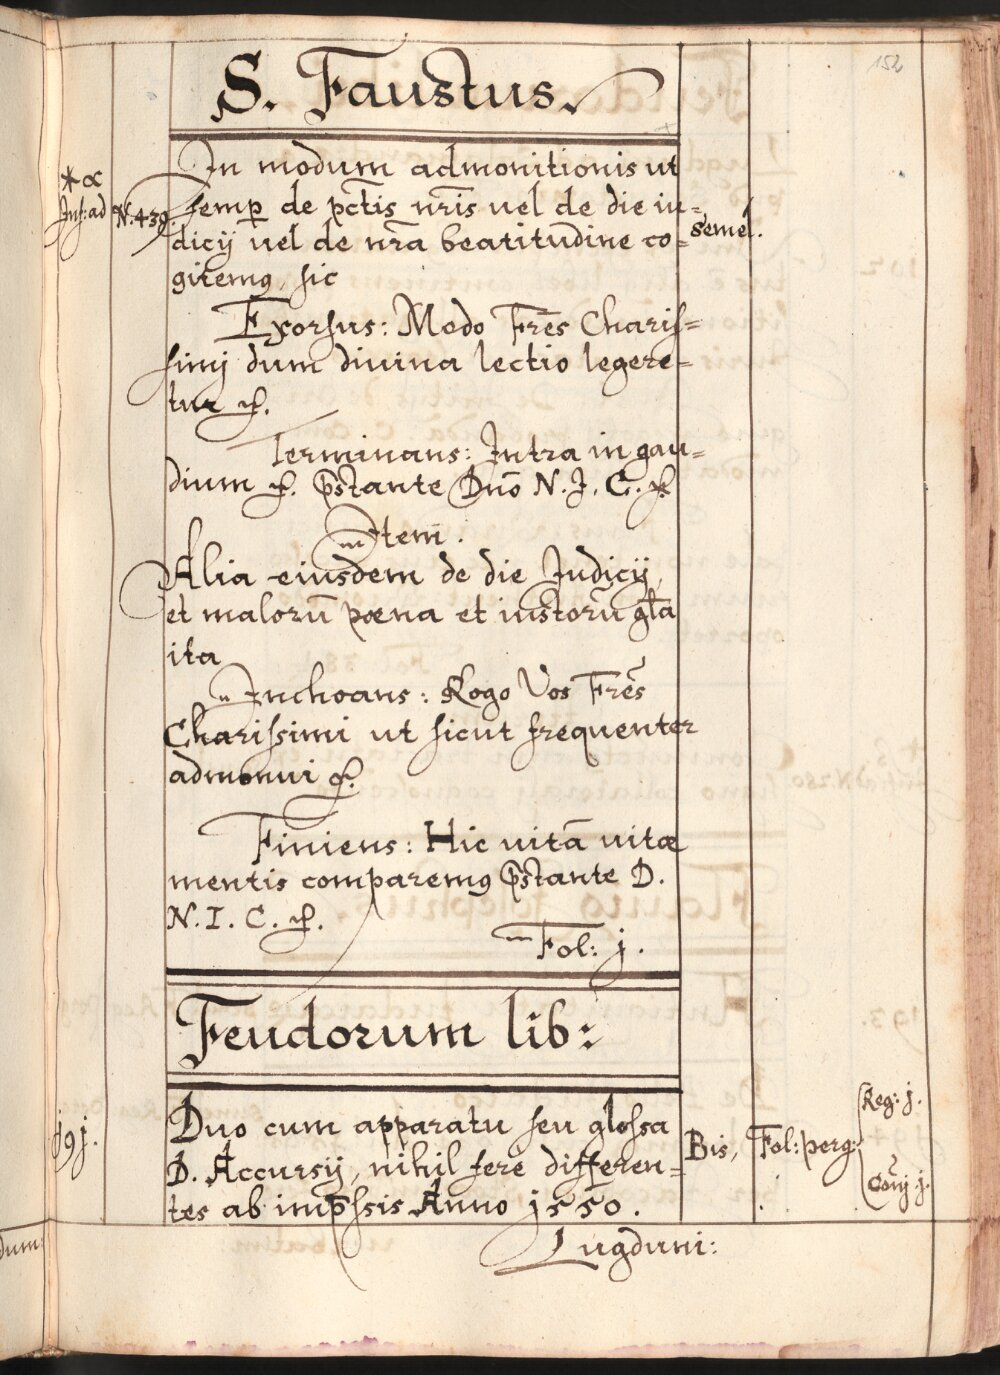 152
S. Faustus.
In modum admonitionis ut
semp de pctis nris uel de die iu=
dicij uel de nra beatitudine co=
gitemq, sic
*∝
Inf: ad N. 439.
semel.
Exorsus: Modo Fres Charis=
simj dum diuina lectio legere=
tur &.
Terminans: Intra in gau=
dium &. pstante Dno N. J. C. &
Item.
Alia eiusdem de die Judicij,
et malorū poena et iustorū gla
ita
Inchoans: Rogo Vos Fres
Charissimi ut sicut frequenter
admonui &.
Finiens: Hic uitā uitæ
mentis comparemq pstante D.
N. I. C. &.
Fol: j.
Feudorum lib:
Duo cum apparatu seu glossa
D. Accursij, nihil fere differen=
tes ab impssis Anno 1550.
Lugduni:
j9j.
Bis, Fol: perg:
Reg: j.
Conj j.
dum